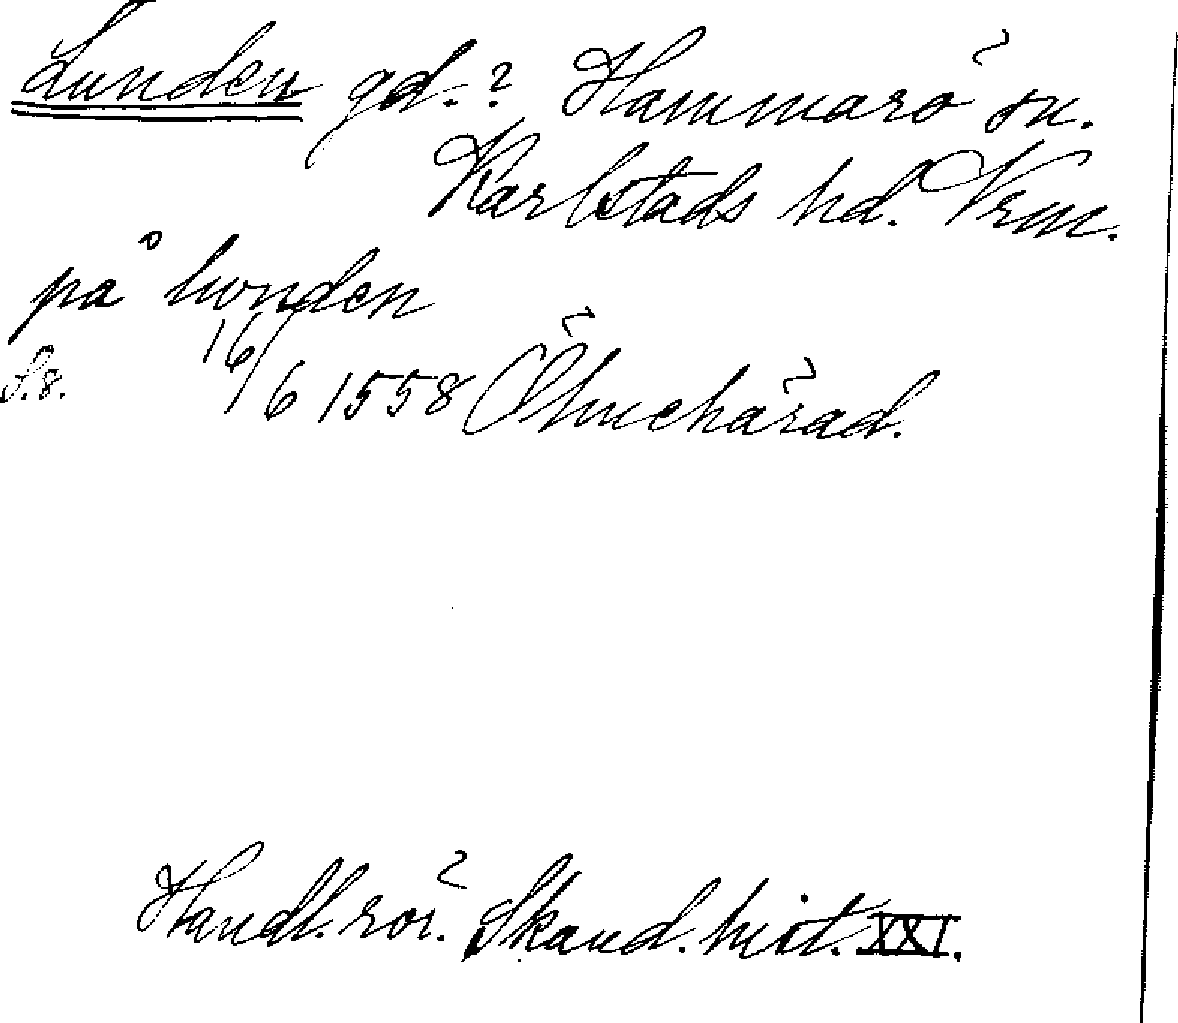 Lunden gd.? Hammarö sn.
Karlstads hd. Vrm.
på lunden
S. 8. 16/6 1558 Ölmehärad.
Handl. rör. Skand. hist. XXI.